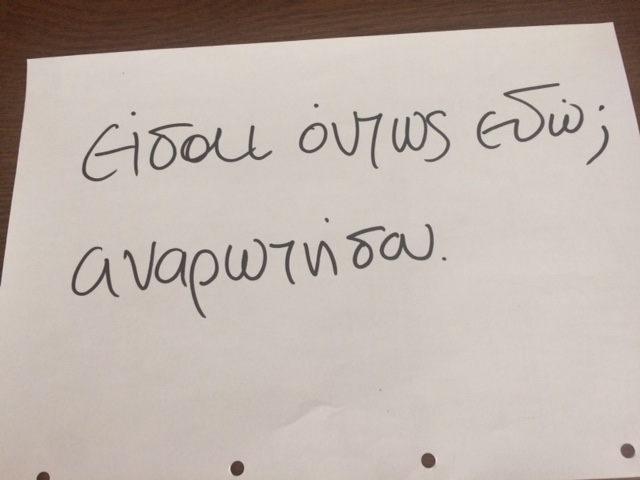 είσαι όντως εδώ;
αναρωτήσου.